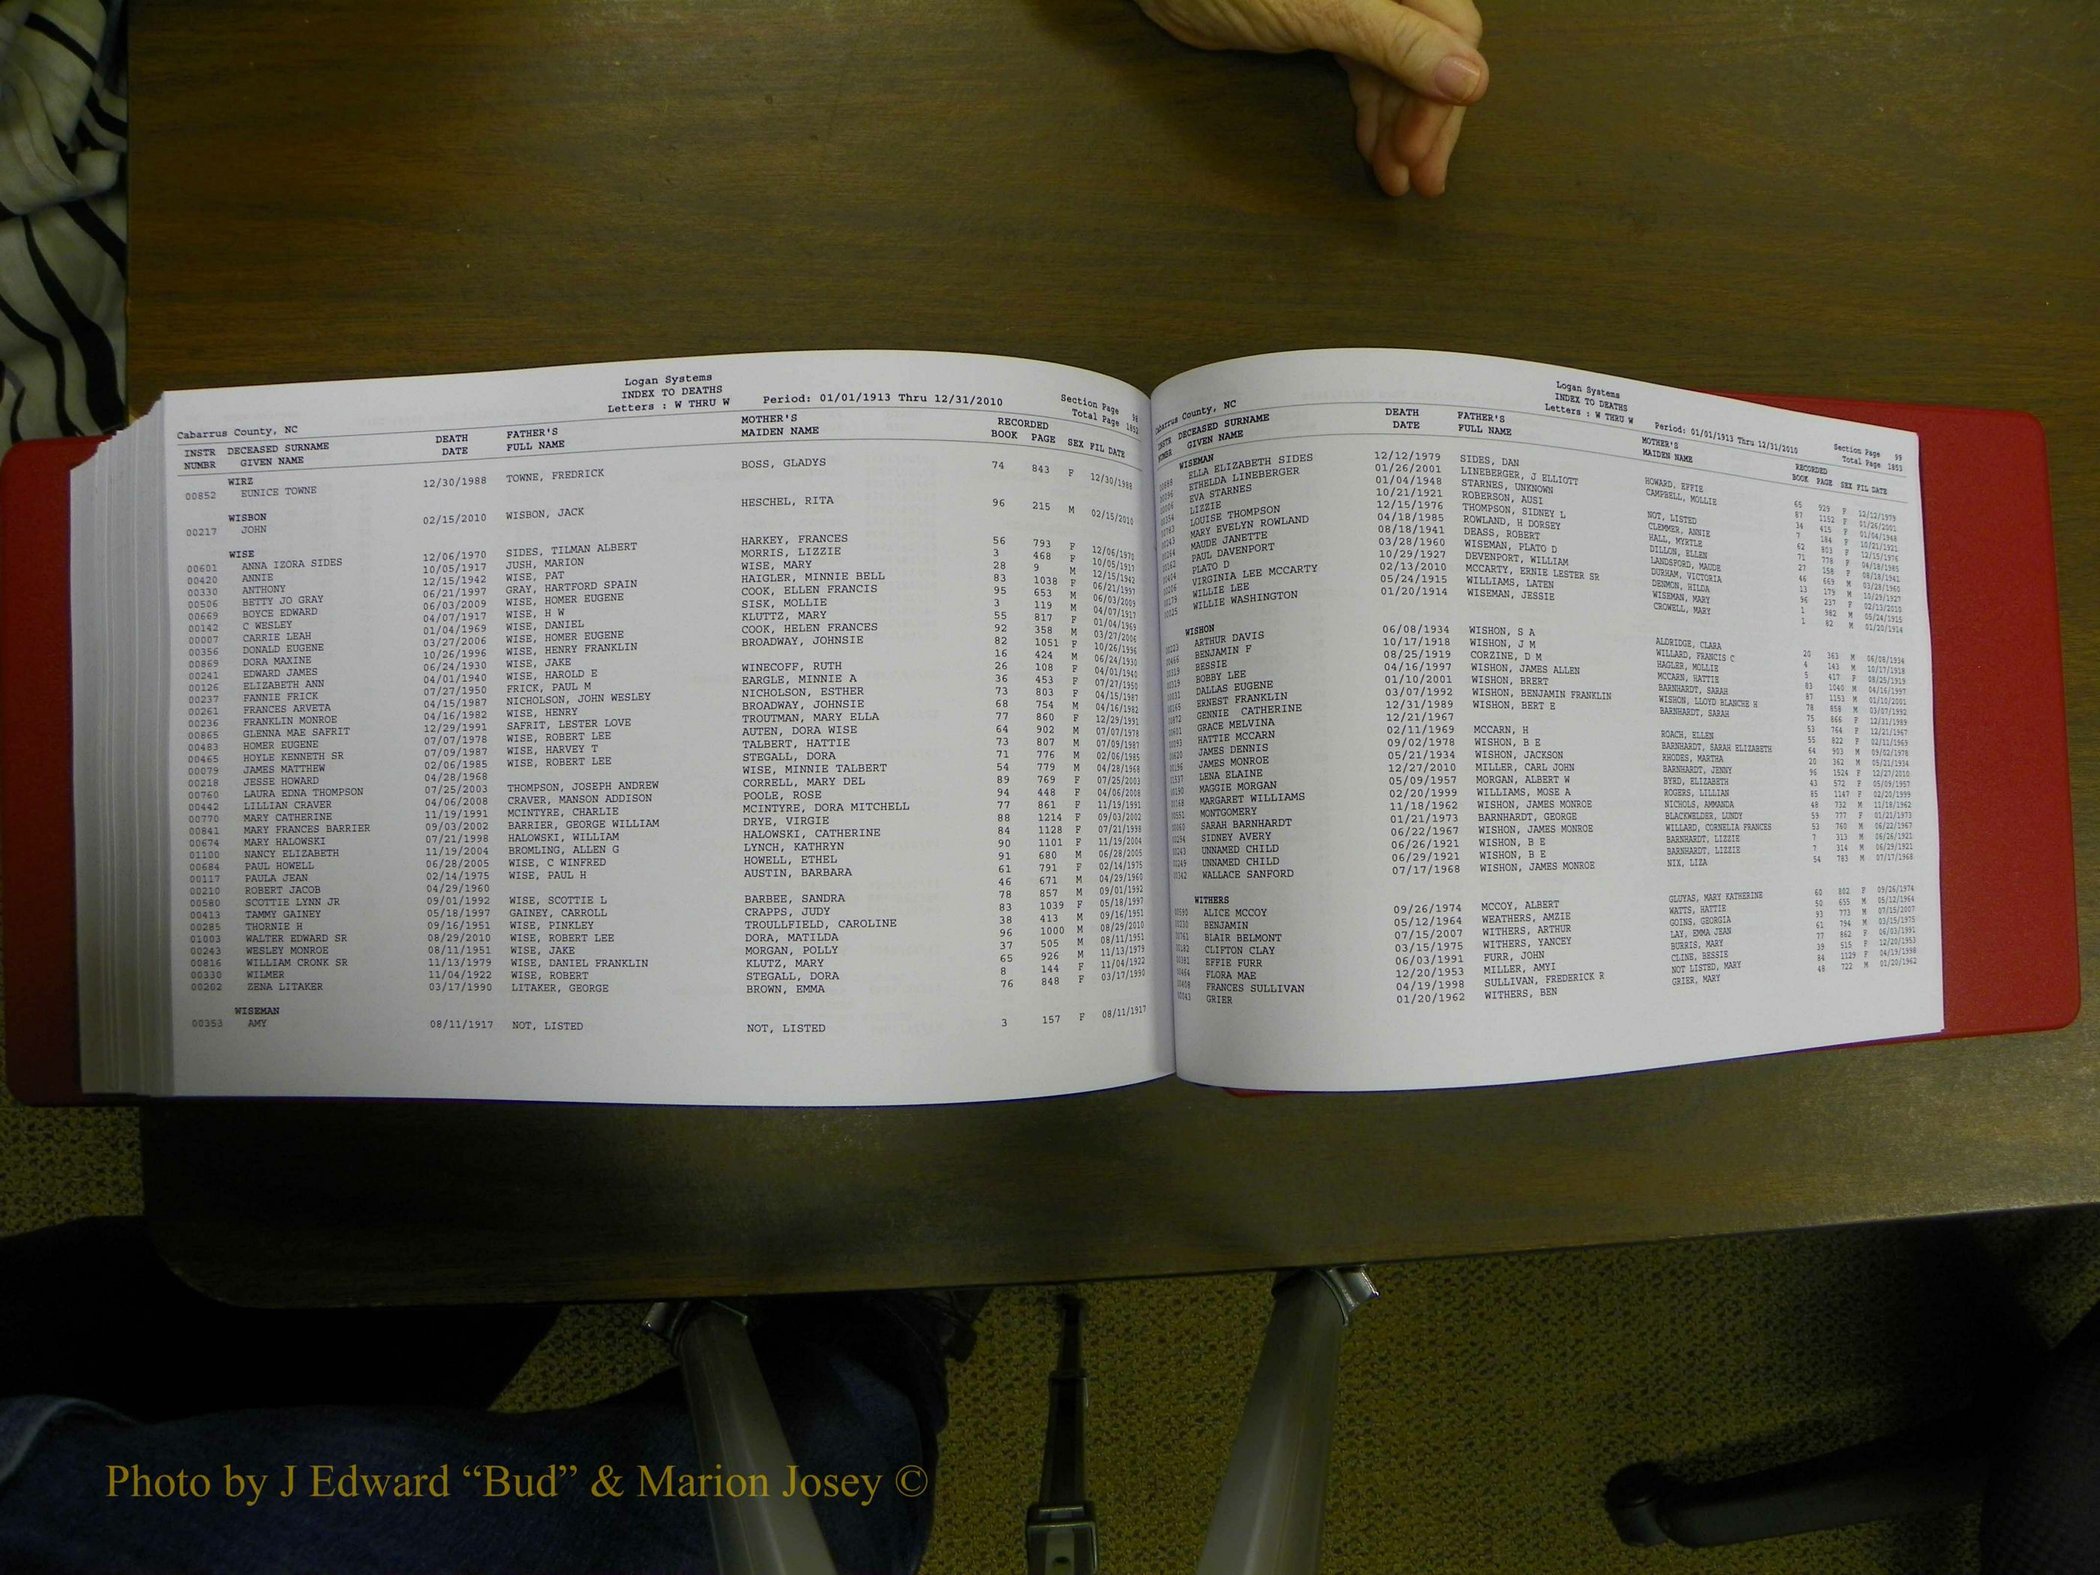 Logan Systems
INDEX TO DEATHS
Letters : W THRU W Period: 01/01/1913 Thru 12/31/2010
Section Page 98
Total Page 1852
Cabarrus County, NC
INSTR DECEASED SURNAME DEATH FATHER'S MOTHER'S RECORDED
NUMBR GIVEN NAME DATE FULL NAME MAIDEN NAME BOOK PAGE SEX FIL DATE
WIRZ
00852 EUNICE TOWNE 12/30/1988 TOWNE, FREDRICK BOSS, GLADYS 74 843 F 12/30/1988
WISBON
00217 JOHN 02/15/2010 WISBON, JACK HESCHEL, RITA 96 215 M 02/15/2010
WISE
00601 ANNA IZORA SIDES 12/06/1970 SIDES, TILMAN ALBERT HARKEY, FRANCES 56 793 F 12/06/1970
00420 ANNIE 10/05/1917 JUSH, MARION MORRIS, LIZZIE 3 468 F 10/05/1917
00330 ANTHONY 12/15/1942 WISE, PAT WISE, MARY 28 9 M 12/15/1942
00506 BETTY JO GRAY 06/21/1997 GRAY, HARTFORD SPAIN HAIGLER, MINNIE BELL 83 1038 F 06/21/1997
00669 BOYCE EDWARD 06/03/2009 WISE, HOMER EUGENE COOK, ELLEN FRANCIS 95 653 M 06/03/2009
00142 C WESLEY 04/07/1917 WISE, H W SISK, MOLLIE 3 119 M 04/07/1917
00007 CARRIE LEAH 01/04/1969 WISE, DANIEL KLUTTZ, MARY 55 817 F 01/04/1969
00356 DONALD EUGENE 03/27/2006 WISE, HOMER EUGENE COOK, HELEN FRANCES 92 358 M 03/27/2006
00869 DORA MAXINE 10/26/1996 WISE, HENRY FRANKLIN BROADWAY, JOHNSIE 82 1051 F 10/26/1996
00241 EDWARD JAMES 06/24/1930 WISE, JAKE 16 424 M 06/24/1930
00126 ELIZABETH ANN 04/01/1940 WISE, HAROLD E WINECOFF, RUTH 26 108 F 04/01/1940
00237 FANNIE FRICK 07/27/1950 FRICK, PAUL M EARGLE, MINNIE A 36 453 F 07/27/1950
00261 FRANCES ARVETA 04/15/1987 NICHOLSON, JOHN WESLEY NICHOLSON, ESTHER 73 803 F 04/15/1987
00236 FRANKLIN MONROE 04/16/1982 WISE, HENRY BROADWAY, JOHNSIE 68 754 M 04/16/1982
00865 GLENNA MAE SAFRIT 12/29/1991 SAFRIT, LESTER LOVE TROUTMAN, MARY ELLA 77 860 F 12/29/1991
00483 HOMER EUGENE 07/07/1978 WISE, ROBERT LEE AUTEN, DORA WISE 64 902 M 07/07/1978
00465 HOYLE KENNETH SR 07/09/1987 WISE, HARVEY T TALBERT, HATTIE 73 807 M 07/09/1987
00079 JAMES MATTHEW 02/06/1985 WISE, ROBERT LEE STEGALL, DORA 71 776 M 02/06/1985
00218 JESSE HOWARD 04/28/1968 WISE, MINNIE TALBERT 54 779 M 04/28/1968
00760 LAURA EDNA THOMPSON 07/25/2003 THOMPSON, JOSEPH ANDREW CORRELL, MARY DEL 89 769 F 07/25/2003
00442 LILLIAN CRAVER 04/06/2008 CRAVER, MANSON ADDISON POOLE, ROSE 94 448 F 04/06/2008
00770 MARY CATHERINE 11/19/1991 MCINTYRE, CHARLIE MCINTYRE, DORA MITCHELL 77 861 F 11/19/1991
00841 MARY FRANCES BARRIER 09/03/2002 BARRIER, GEORGE WILLIAM DRYE, VIRGIE 88 1214 F 09/03/2002
00674 MARY HALOWSKI 07/21/1998 HALOWSKI, WILLIAM HALOWSKI, CATHERINE 84 1128 F 07/21/1998
01100 NANCY ELIZABETH 11/19/2004 BROMLING, ALLEN G LYNCH, KATHRYN 90 1101 F 11/19/2004
00684 PAUL HOWELL 06/28/2005 WISE, C WINFRED HOWELL, ETHEL 91 680 M 06/28/2005
00117 PAULA JEAN 02/14/1975 WISE, PAUL H AUSTIN, BARBARA 61 791 F 02/14/1975
00210 ROBERT JACOB 04/29/1960 46 671 M 04/29/1960
00580 SCOTTIE LYNN JR 09/01/1992 WISE, SCOTTIE L BARBEE, SANDRA 78 857 M 09/01/1992
00413 TAMMY GAINEY 05/18/1997 GAINEY, CARROLL CRAPPS, JUDY 83 1039 F 05/18/1997
00285 THORNIE H 09/16/1951 WISE, PINKLEY TROULLFIELD, CAROLINE 38 413 M 09/16/1951
01003 WALTER EDWARD SR 08/29/2010 WISE, ROBERT LEE DORA, MATILDA 96 1000 M 08/29/2010
00243 WESLEY MONROE 08/11/1951 WISE, JAKE MORGAN, POLLY 37 505 M 08/11/1951
00816 WILLIAM CRONK SR 11/13/1979 WISE, DANIEL FRANKLIN KLUTZ, MARY 65 926 M 11/13/1979
00330 WILMER 11/04/1922 WISE, ROBERT STEGALL, DORA 8 144 F 11/04/1922
00202 ZENA LITAKER 03/17/1990 LITAKER, GEORGE BROWN, EMMA 76 848 F 03/17/1990
WISEMAN
00353 AMY 08/11/1917 NOT, LISTED NOT, LISTED 3 157 F 08/11/1917
Logan Systems
INDEX TO DEATHS
Letters : W THRU W Period: 01/01/1913 Thru 12/31/2010
Section Page 99
Total Page 1853
Cabarrus County, NC
INSTR DECEASED SURNAME DEATH FATHER'S MOTHER'S RECORDED
NUMBR GIVEN NAME DATE FULL NAME MAIDEN NAME BOOK PAGE SEX FIL DATE
WISEMAN
ELLA ELIZABETH SIDES 12/12/1979 SIDES, DAN HOWARD, EFFIE 65 929 F 12/12/1979
ETHELDA LINEBERGER 01/26/2001 LINEBERGER, J ELLIOTT CAMPBELL, MOLLIE 87 1152 F 01/26/2001
EVA STARNES 01/04/1948 STARNES, UNKNOWN 34 415 F 01/04/1948
LIZZIE 10/21/1921 ROBERSON, AUSI NOT, LISTED 7 184 F 10/21/1921
LOUISE THOMPSON 12/15/1976 THOMPSON, SIDNEY L CLEMMER, ANNIE 62 803 F 12/15/1976
MARY EVELYN ROWLAND 04/18/1985 ROWLAND, H DORSEY HALL, MYRTLE 71 778 F 04/18/1985
MAUDE JANETTE 08/18/1941 DEASS, ROBERT DILLON, ELLEN 27 158 F 08/18/1941
PAUL DAVENPORT 03/28/1960 WISEMAN, PLATO D LANDSFORD, MAUDE 46 669 M 03/28/1960
PLATO D 10/29/1927 DEVENPORT, WILLIAM DURHAM, VICTORIA 13 179 M 10/29/1927
VIRGINIA LEE MCCARTY 02/13/2010 MCCARTY, ERNIE LESTER SR DENMON, HILDA 96 237 F 02/13/2010
WILLIE LEE 05/24/1915 WILLIAMS, LATEN WISEMAN, MARY 1 982 M 05/24/1915
WILLIE WASHINGTON 01/20/1914 WISEMAN, JESSIE CROWELL, MARY 1 82 M 01/20/1914
WISHON
ARTHUR DAVIS 06/08/1934 WISHON, S A ALDRIDGE, CLARA 20 363 M 06/08/1934
BENJAMIN F 10/17/1918 WISHON, J M WILLARD, FRANCIS C 4 143 M 10/17/1918
BESSIE 08/25/1919 CORZINE, D M HAGLER, MOLLIE 5 417 F 08/25/1919
BOBBY LEE 04/16/1997 WISHON, JAMES ALLEN MCCARN, HATTIE 83 1040 M 04/16/1997
DALLAS EUGENE 01/10/2001 WISHON, BRERT BARNHARDT, SARAH 87 1153 M 01/10/2001
ERNEST FRANKLIN 03/07/1992 WISHON, BENJAMIN FRANKLIN WISHON, LLOYD BLANCHE H 78 858 M 03/07/1992
GENNIE CATHERINE 12/31/1989 WISHON, BERT E BARNHARDT, SARAH 75 866 F 12/31/1989
GRACE MELVINA 12/21/1967 53 764 F 12/21/1967
HATTIE MCCARN 02/11/1969 MCCARN, H ROACH, ELLEN 55 822 F 02/11/1969
JAMES DENNIS 09/02/1978 WISHON, B E BARNHARDT, SARAH ELIZABETH 64 903 M 09/02/1978
JAMES MONROE 05/21/1934 WISHON, JACKSON RHODES, MARTHA 20 362 M 05/21/1934
LENA ELAINE 12/27/2010 MILLER, CARL JOHN BARNHARDT, JENNY 96 1524 F 12/27/2010
MAGGIE MORGAN 05/09/1957 MORGAN, ALBERT W BYRD, ELIZABETH 43 572 F 05/09/1957
MARGARET WILLIAMS 02/20/1999 WILLIAMS, MOSE A ROGERS, LILLIAN 85 1147 F 02/20/1999
MONTGOMERY 11/18/1962 WISHON, JAMES MONROE NICHOLS, AMMANDA 48 732 M 11/18/1962
SARAH BARNHARDT 01/21/1973 BARNHARDT, GEORGE BLACKWELDER, LUNDY 59 777 F 01/21/1973
SIDNEY AVERY 06/22/1967 WISHON, JAMES MONROE WILLARD, CORNELIA FRANCES 53 760 M 06/22/1967
UNNAMED CHILD 06/26/1921 WISHON, B E BARNHARDT, LIZZIE 7 313 M 06/26/1921
UNNAMED CHILD 06/29/1921 WISHON, B E BARNHARDT, LIZZIE 7 314 M 06/29/1921
WALLACE SANFORD 07/17/1968 WISHON, JAMES MONROE NIX, LIZA 54 783 M 07/17/1968
WITHERS
ALICE MCCOY 09/26/1974 MCCOY, ALBERT GLUYAS, MARY KATHERINE 60 802 F 09/26/1974
BENJAMIN 05/12/1964 WEATHERS, AMZIE WATTS, HATTIE 50 655 M 05/12/1964
BLAIR BELMONT 07/15/2007 WITHERS, ARTHUR GOINS, GEORGIA 93 773 M 07/15/2007
CLIFTON CLAY 03/15/1975 WITHERS, YANCEY LAY, EMMA JEAN 61 794 M 03/15/1975
EFFIE FURR 06/03/1991 FURR, JOHN BURRIS, MARY 77 862 F 06/03/1991
FLORA MAE 12/20/1953 MILLER, AMYI CLINE, BESSIE 39 515 F 12/20/1953
FRANCES SULLIVAN 04/19/1998 SULLIVAN, FREDERICK R NOT LISTED, MARY 84 1129 F 04/19/1998
GRIER 01/20/1962 WITHERS, BEN GRIER, MARY 48 722 M 01/20/1962
Photo by J Edward “Bud” & Marion Josey ©